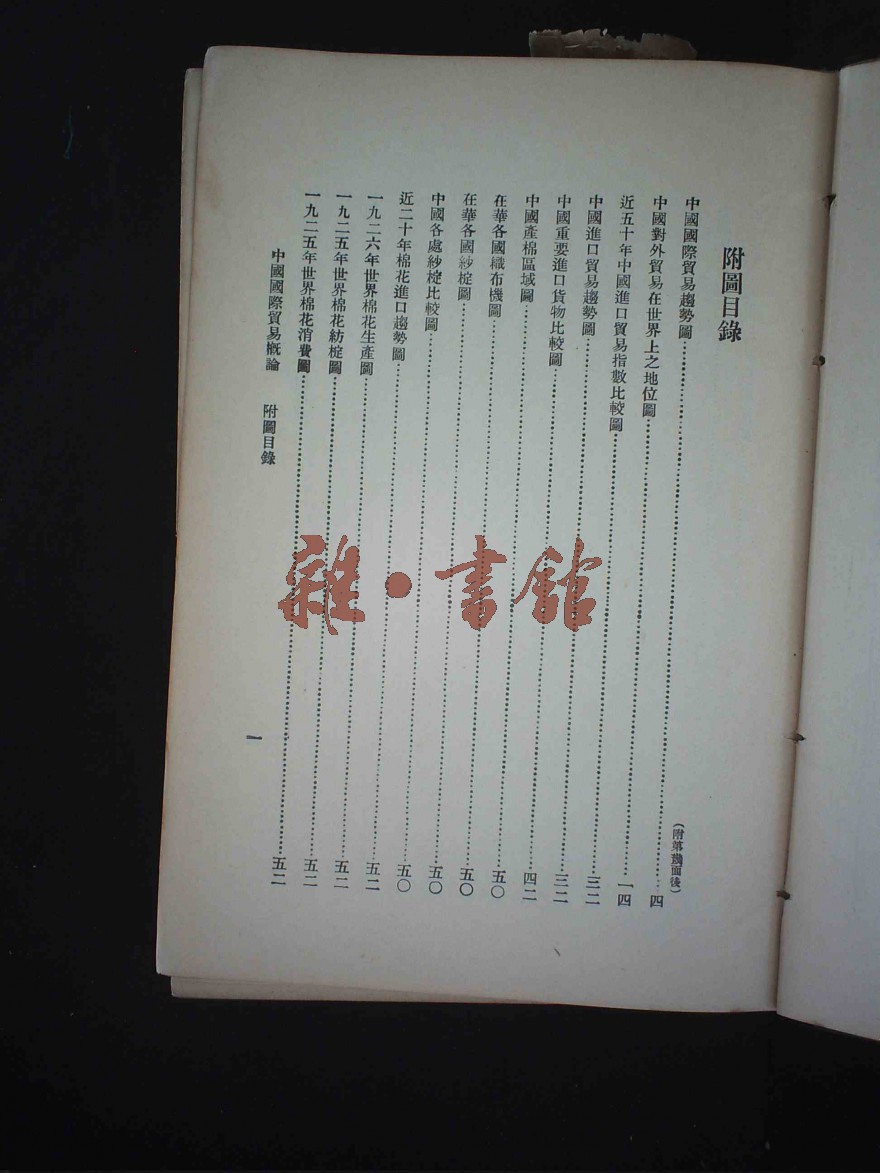 附圖目錄
(附第幾面後)
中國國際貿易趨勢圖……四
中國對外貿易在世界上之地位圖……一四
近五十年中國進口貿易指數比較圖……三二
中國進口貿易趨勢圖……三二
中國重要進口貨物比較圖……四二
中國產棉區域圖……五〇
在華各國織布機圖……五〇
在華各國紗椗圖……五〇
中國各處紗椗比較圖……五〇
近二十年棉花進口趨勢圖……五二
一九二六年世界棉花生產圖……五二
一九二五年世界棉花紡椗圖……五二
一九二五年世界棉花消費圖……五二
中國國際貿易概論 附圖目錄
一
雜·書館